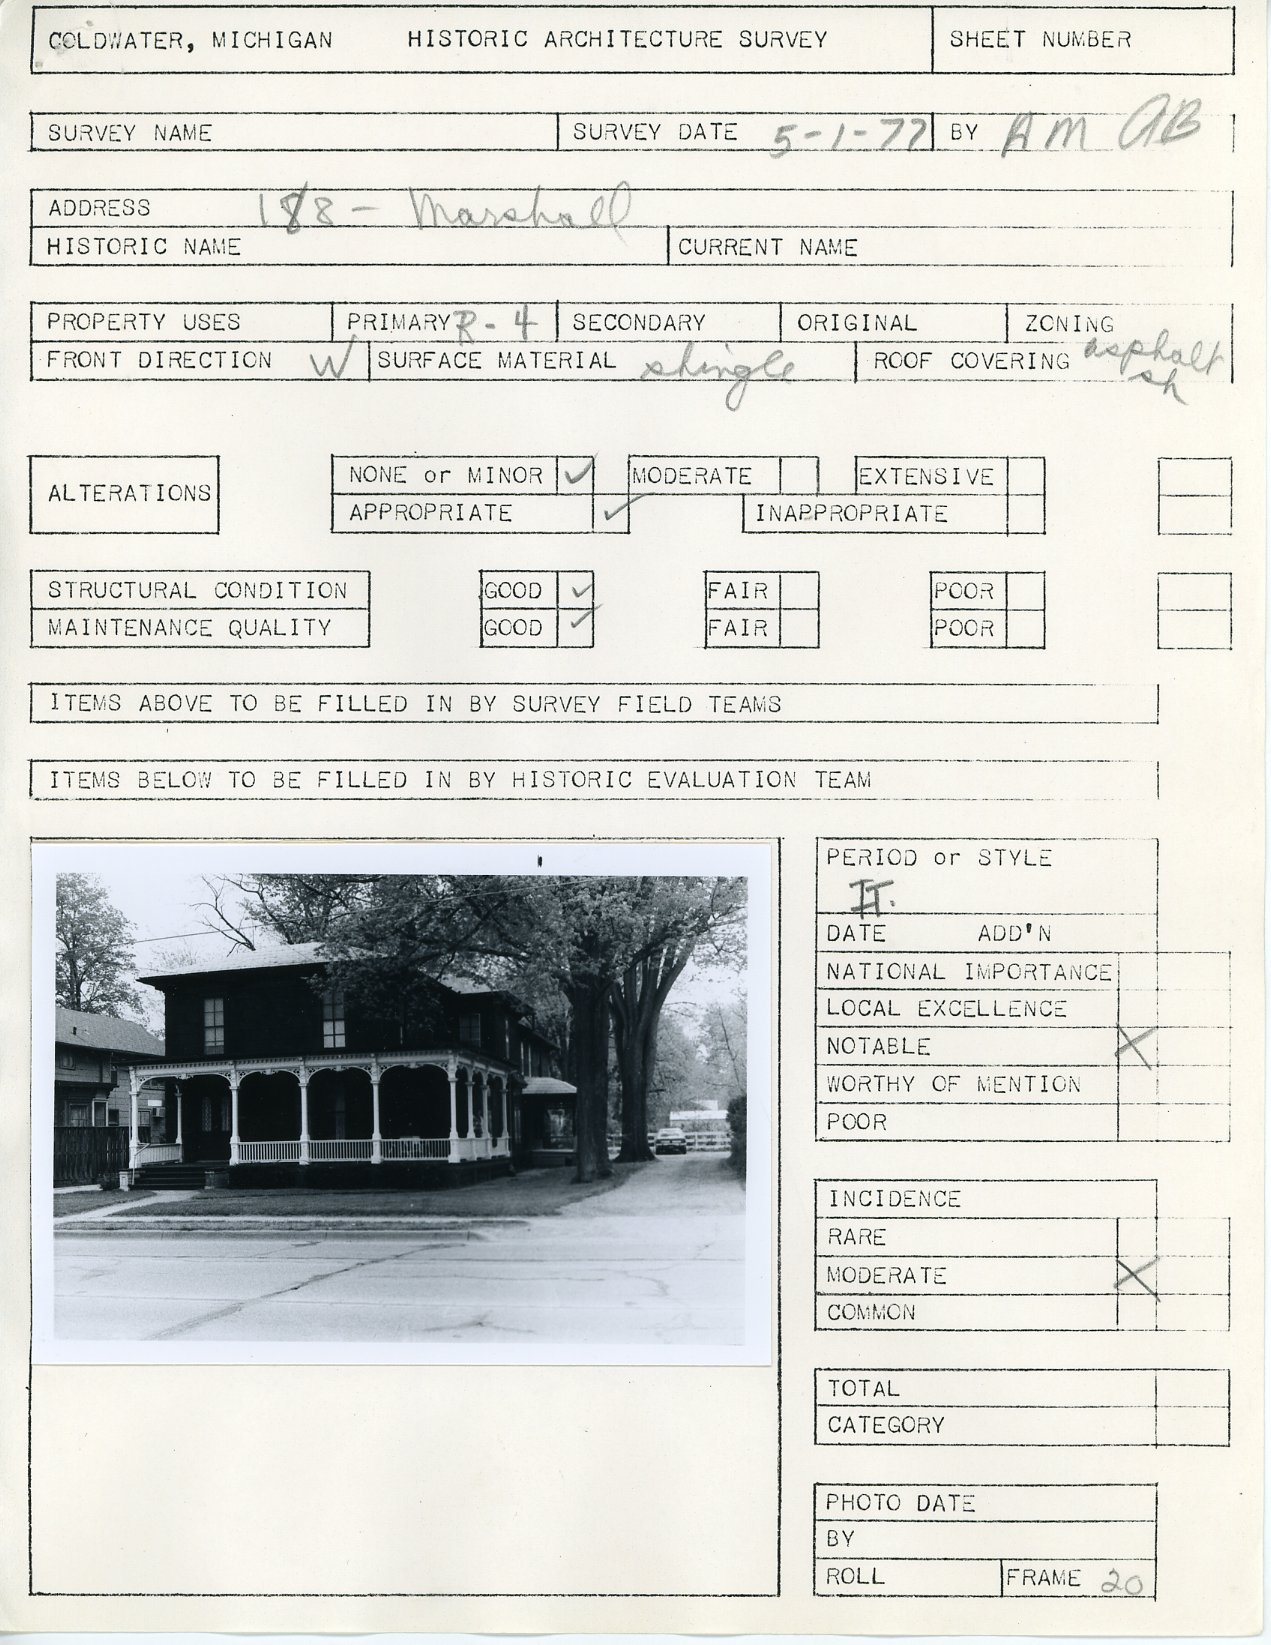 COLDWATER, MICHIGAN HISTORIC ARCHITECTURE SURVEY SHEET NUMBER
SURVEY NAME SURVEY DATE 5-1-77 BY AM AB
ADDRESS 188 - Marshall
HISTORIC NAME CURRENT NAME
PROPERTY USES PRIMARY R-4 SECONDARY ORIGINAL ZONING
FRONT DIRECTION W SURFACE MATERIAL shingle ROOF COVERING asphalt
sh
ALTERATIONS NONE or MINOR ✓ MODERATE EXTENSIVE
APPROPRIATE ✓ INAPPROPRIATE
STRUCTURAL CONDITION GOOD ✓ FAIR POOR
MAINTENANCE QUALITY GOOD ✓ FAIR POOR
ITEMS ABOVE TO BE FILLED IN BY SURVEY FIELD TEAMS
ITEMS BELOW TO BE FILLED IN BY HISTORIC EVALUATION TEAM
PERIOD or STYLE
IT.
DATE ADD'N
NATIONAL IMPORTANCE
LOCAL EXCELLENCE
NOTABLE X
WORTHY OF MENTION
POOR
INCIDENCE
RARE
MODERATE X
COMMON
TOTAL
CATEGORY
PHOTO DATE
BY
ROLL FRAME 20